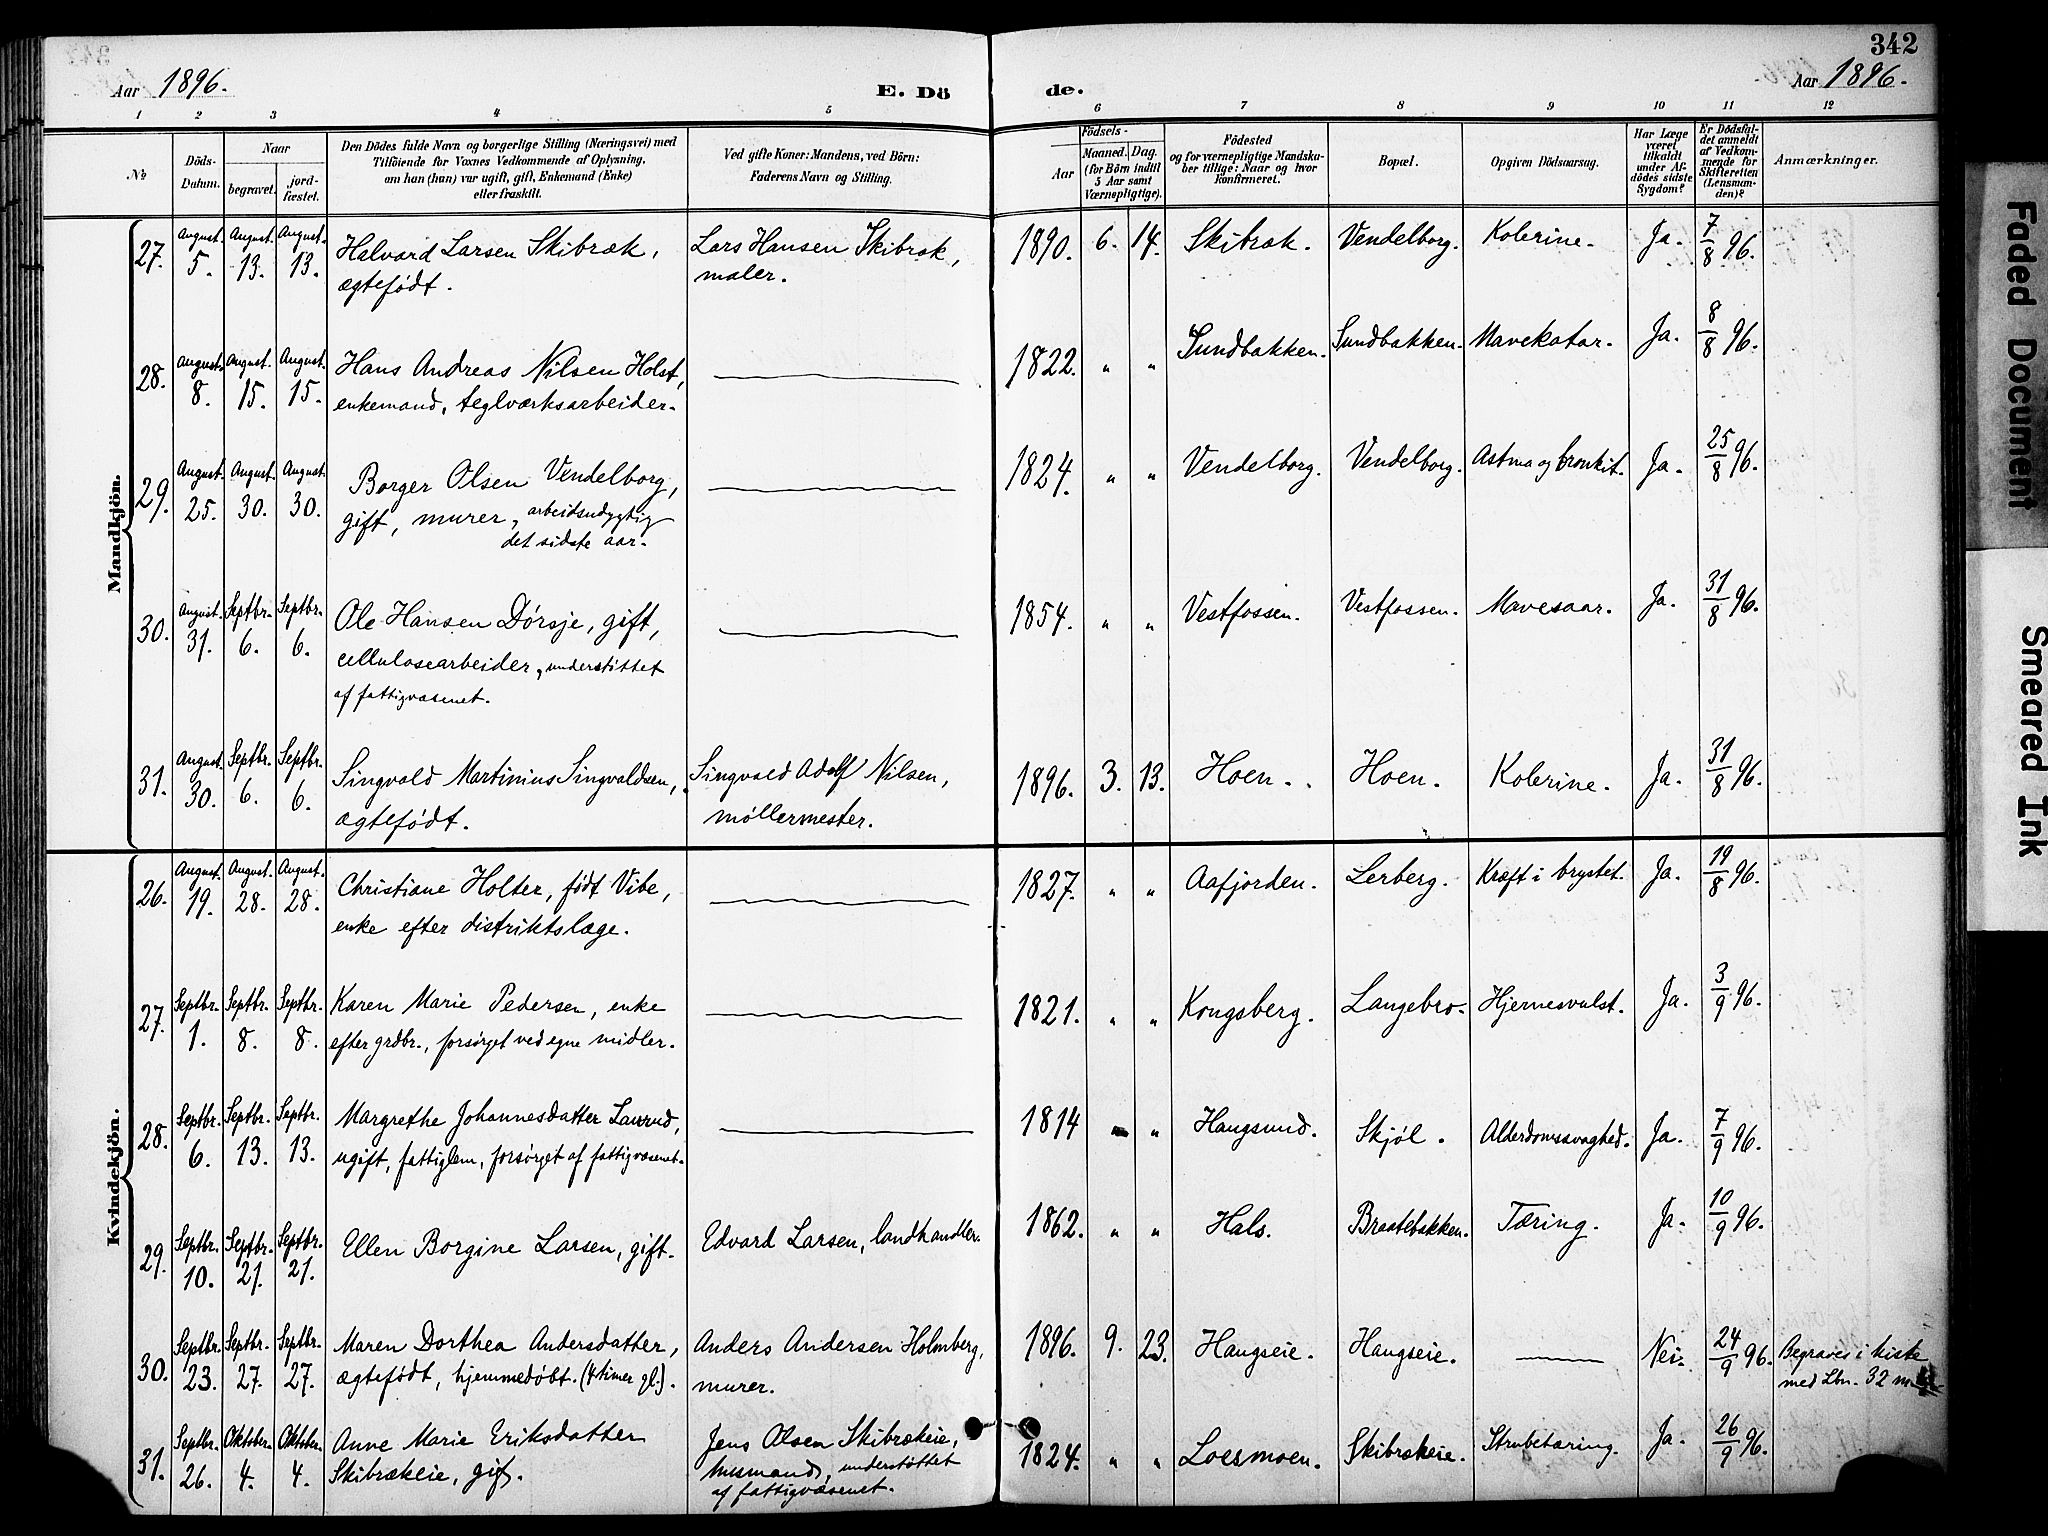 342
Aar 1896.
E. Dö
de.
Aar 1896.
1 2 3 4 5 6 7 8 9 10 11 12
№
Döds-
Datum.
Naar
begravet.
jord-
fæstet.
Den Dödes fulde Navn og borgerlige Stilling (Næringsvei) med
Tilföiende for Voxnes Vedkommende af Oplysning,
om han (hun) var ugift, gift, Enkemand (Enke)
eller fraskilt.
Ved gifte Koner: Mandens, ved Börn:
Faderens Navn og Stilling.
Födsels-
Aar
Maaned. Dag.
(for Börn indtil
5 Aar samt
Værnepligtige).
Födested
og for værnepligtige Mandska-
ber tillige: Naar og hvor
Konfirmeret.
Bopæl.
Opgiven Dödsaarsag.
Har Læge
været
tilkaldt
under Af-
dödes sidste
Sygdom?
Er Dödsfal-
det anmeldt
af Vedkom-
mende for
Skifteretten
(Lensman-
den)?
Anmærkninger.
Mandkjön.
27. August. 5. August. 13. August. 13. Halvard Larsen Skibræk, Lars Hansen Skibræk, 1890. 6. 14. Skibræk. Vendelborg. Kolerine. Ja. 7/8 96.
ægtefødt. maler.
28. August. 8. August. 15. August. 15. Hans Andreas Nilsen Holst, 1822. " " Sundbakken. Sundbakken. Mavekatar. Ja. 8/8 96.
enkemand, teglværksarbeider.
29. August. 25. August. 30. August. 30. Borger Olsen Vendelborg, 1824. " " Vendelborg. Vendelborg. Astma og bronkit. Ja. 25/8 96.
gift, murer, arbeidsudygtig
det sidste aar.
30. August. 31. Septbr. 6. Septbr. 6. Ole Hansen Dørsje, gift, 1854. " " Vestfossen. Vestfossen. Mavesaar. Ja. 31/8 96.
cellulosearbeider, understøttet
af fattigvæsenet.
31. August. 30. Septbr. 6. Septbr. 6. Singvald Martinius Singvaldsen, Singvald Adolf Nilsen, 1896. 3. 13. Hoen. Hoen. Kolerine. Ja. 31/8 96.
ægtefødt. møllermester.
Kvindekjön.
26. August. 19. August. 28. August. 28. Christiane Holter, født Vibe, 1827. " " Aafjorden. Lerberg. Kræft i brystet. Ja. 19/8 96.
enke efter distriktslæge.
27. Septbr. 1. Septbr. 8. Septbr. 8. Karen Marie Pedersen, enke 1821. " " Kongsberg. Langebro. Hjernesvulst. Ja. 3/9 96.
efter grdbr., forsørget ved egne midler.
28. Septbr. 6. Septbr. 13. Septbr. 13. Margrethe Johannesdatter Laurud, 1814 " Haugsund. Skjøl. Alderdomssvaghed. Ja. 7/9 96.
ugift, fattiglem, forsørget af fattigvæsenet.
29. Septbr. 10. Septbr. 21. Septbr. 21. Ellen Borgine Larsen, gift. Edvard Larsen, landhandler. 1862. " " Hals. Braatebakken. Tæring. Ja. 10/9 96.
30. Septbr. 23. Septbr. 27. Septbr. 27. Maren Dorthea Andersdatter, Anders Andersen Holmberg, 1896. 9. 23. Haugseie. Haugseie. Nei. 24/9 96. Begraves i kiste
ægtefødt, hjemmedøbt. (4 timer gl.). murer. med Lbn. 32 m
31. Septbr. 26. Oktober. 4. Oktober. 4. Anne Marie Eriksdatter Jens Olsen Skibrækeie, 1824. " " Loesmoen. Skibrækeie. Strubetæring. Ja. 26/9 96.
Skibrækeie, gift. husmand, understøttet
af fattigvæsenet.
Faded Document
Smeared Ink